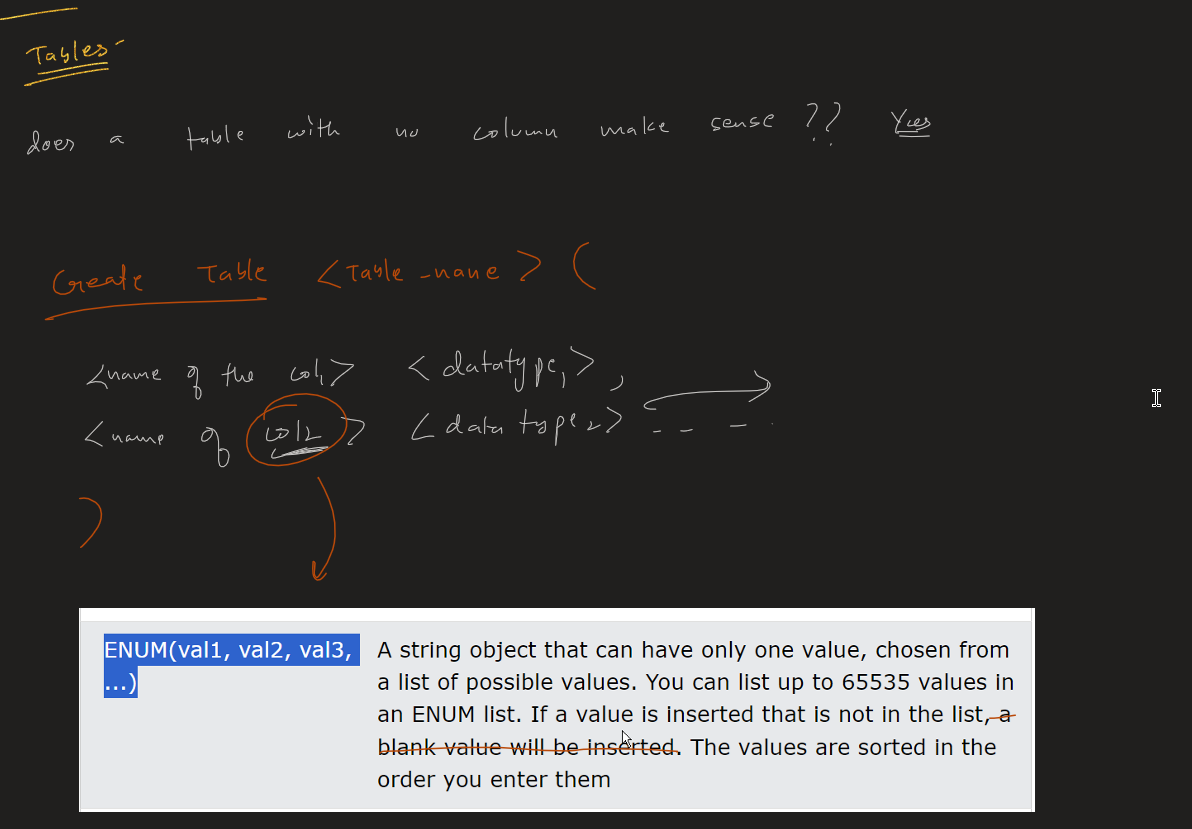 Tables
does a table with no column make sense ?? Yes
Create Table <Table_name> (
<name of the col1> <datatype1>,
<name of col2> <data type2> _ _ _
)
ENUM(val1, val2, val3, ...)
A string object that can have only one value, chosen from
a list of possible values. You can list up to 65535 values in
an ENUM list. If a value is inserted that is not in the list, a
blank value will be inserted. The values are sorted in the
order you enter them